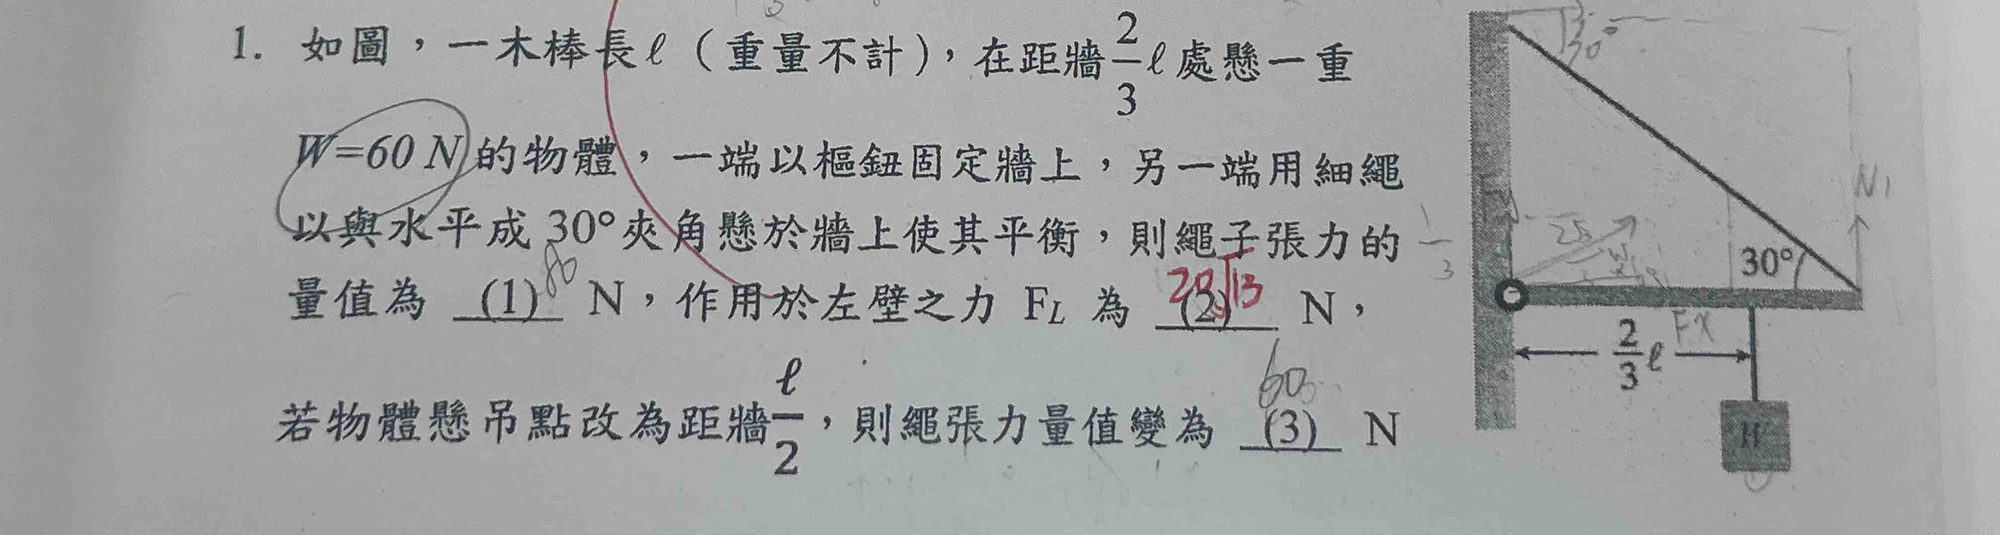 1. 如圖，一木棒長ℓ（重量不計），在距牆2/3ℓ處懸一重
W=60 N的物體，一端以樞鈕固定牆上，另一端用細繩
以與水平成 30°夾角懸於牆上使其平衡，則繩子張力的
量值為 (1) N，作用於左壁之力 FL 為 (2) N，
80
20√13
若物體懸吊點改為距牆ℓ/2，則繩張力量值變為 (3) N
60
30°
N1
1/3
30°
2/3 ℓ
Fx
W